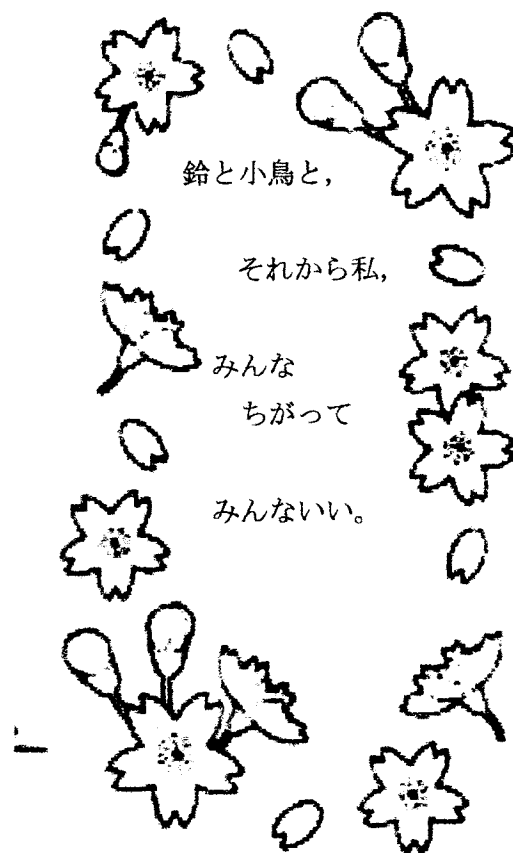 鈴と小鳥と,
それから私,
みんな
ちがって
みんないい。